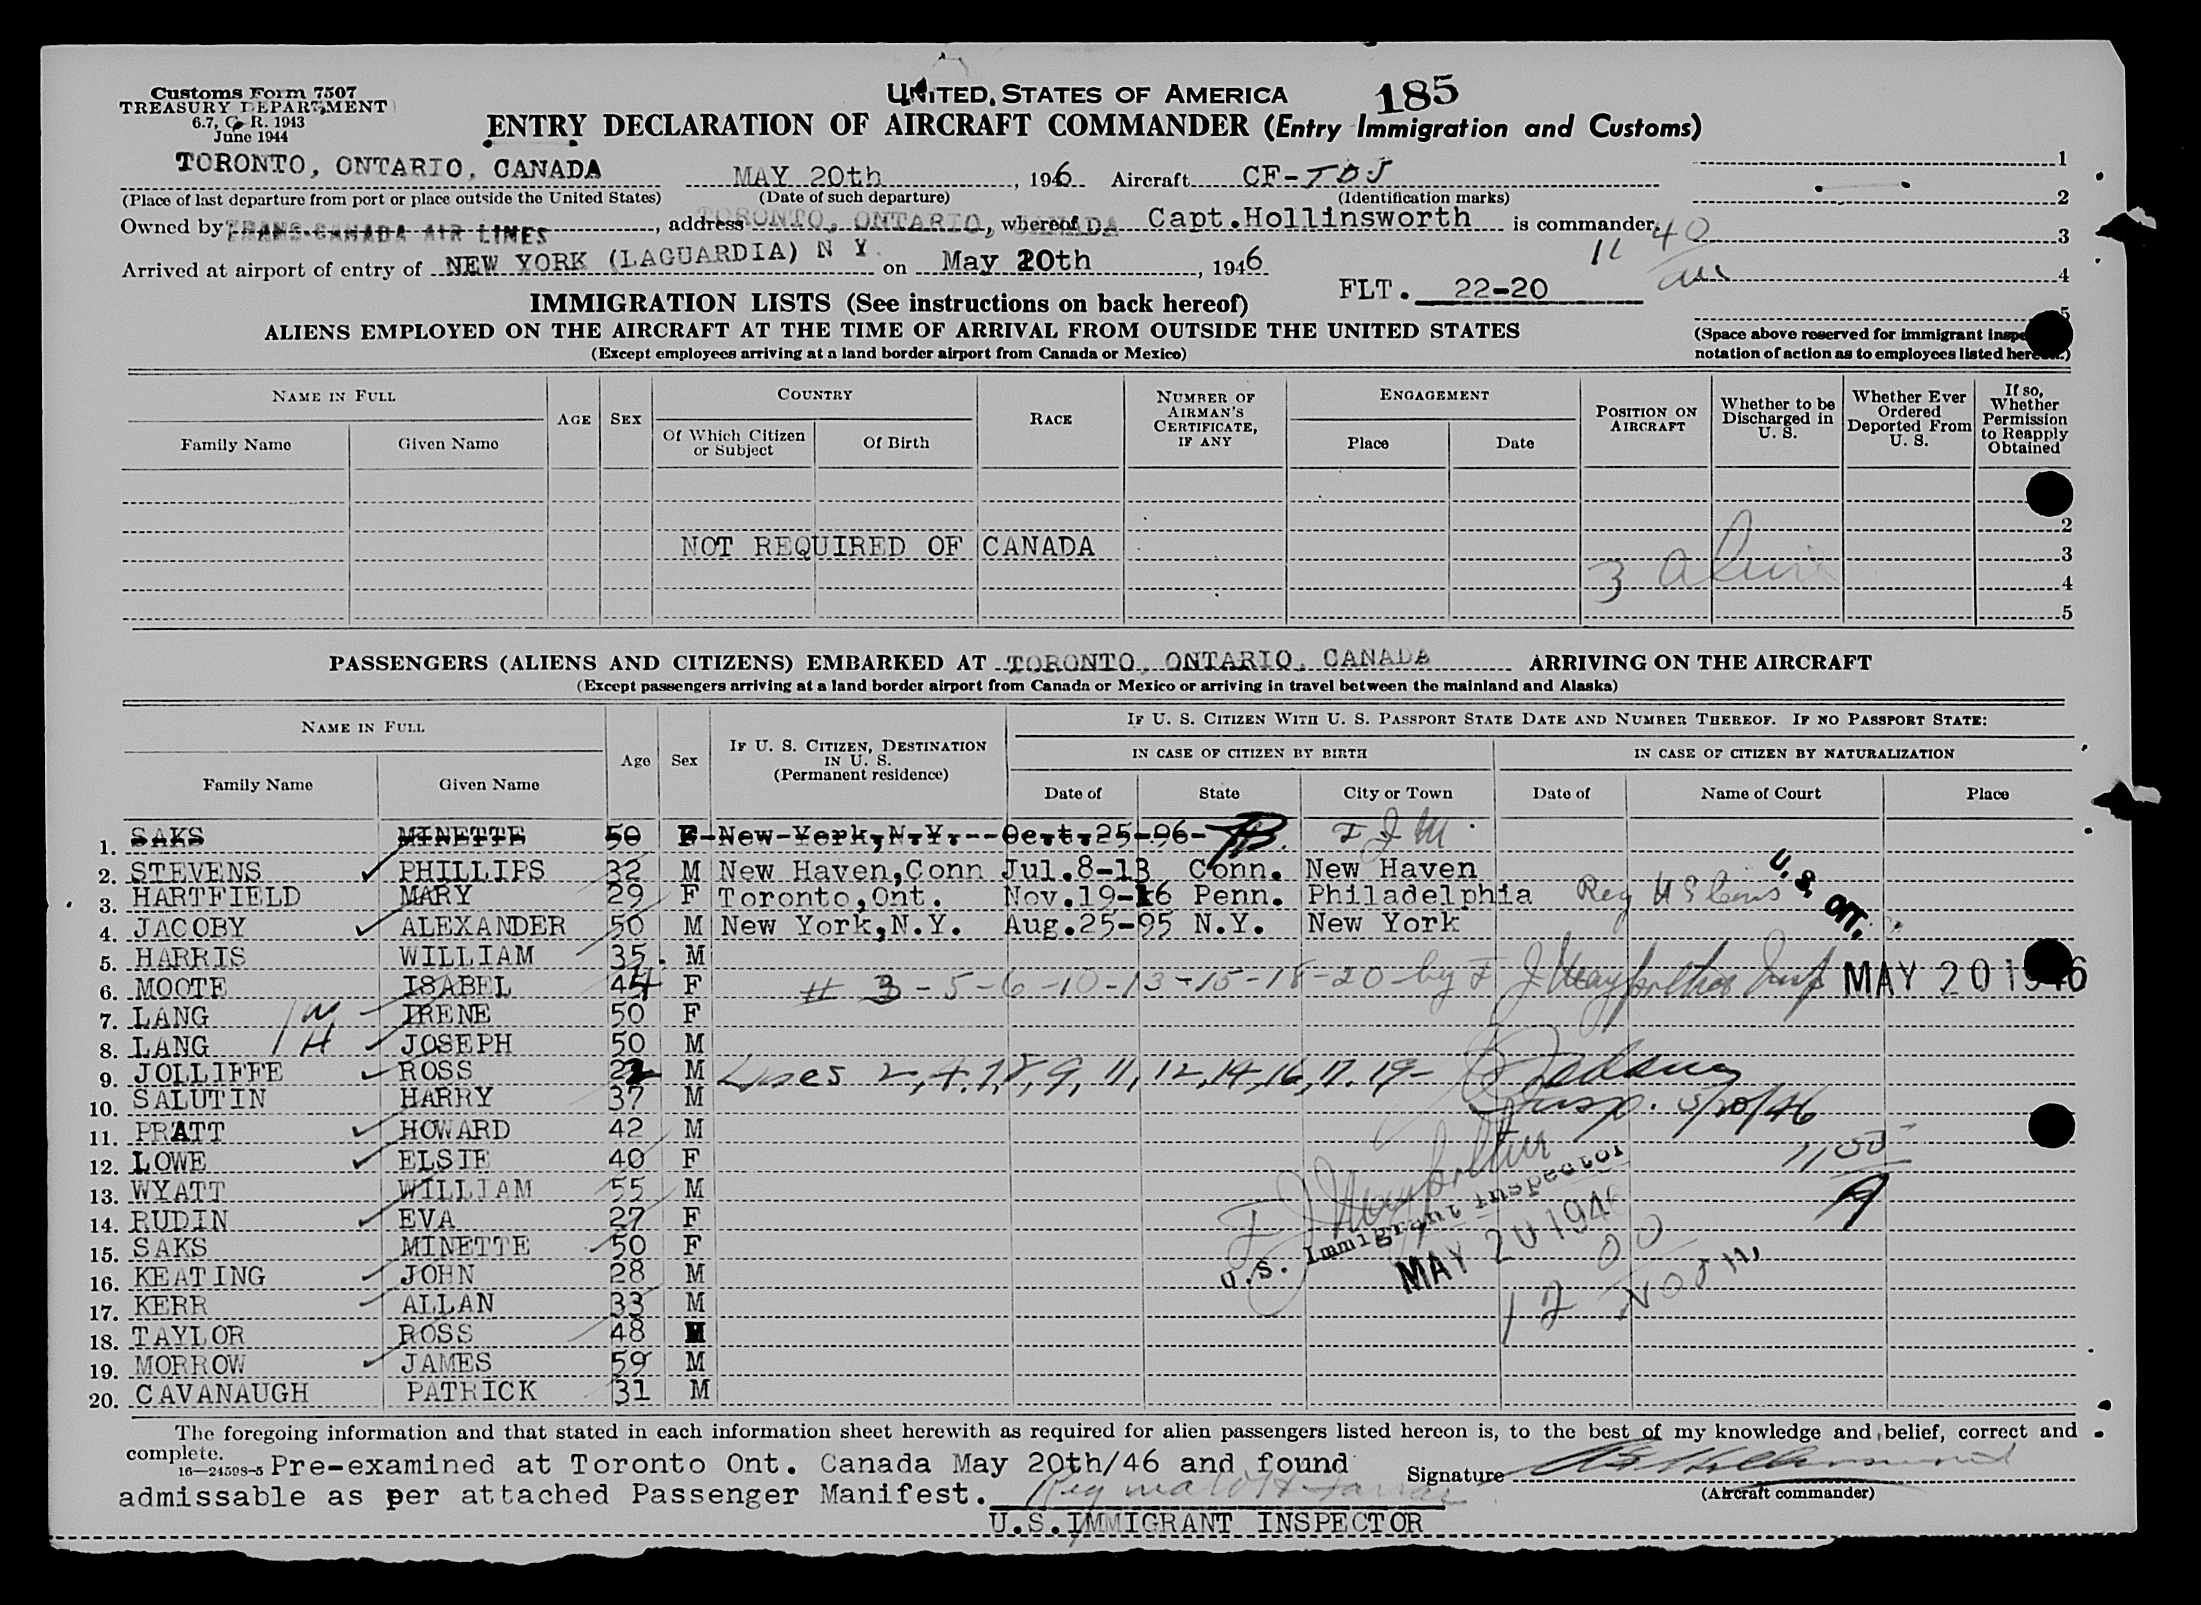 Customs Form 7507
TREASURY DEPARTMENT
6.7, C. R. 1943
June 1944
UNITED STATES OF AMERICA
185
ENTRY DECLARATION OF AIRCRAFT COMMANDER (Entry Immigration and Customs)
TORONTO, ONTARIO, CANADA MAY 20th, 1946 Aircraft CF-TDJ
(Place of last departure from port or place outside the United States) (Date of such departure) (Identification marks)
Owned by TRANS-CANADA AIR LINES, address TORONTO, ONTARIO, CANADA, whereof Capt.Hollinsworth is commander.
Arrived at airport of entry of NEW YORK (LAGUARDIA) N Y. on May 20th, 1946
11 40
am
FLT. 22-20
1
2
3
4
5
IMMIGRATION LISTS (See instructions on back hereof)
ALIENS EMPLOYED ON THE AIRCRAFT AT THE TIME OF ARRIVAL FROM OUTSIDE THE UNITED STATES
(Except employees arriving at a land border airport from Canada or Mexico)
(Space above reserved for immigrant
notation of action as to employees listed
NAME IN FULL
Family Name Given Name
AGE SEX
COUNTRY
Of Which Citizen or Subject Of Birth
RACE
NUMBER OF AIRMAN'S CERTIFICATE, IF ANY
ENGAGEMENT
Place Date
POSITION ON AIRCRAFT
Whether to be Discharged in U. S.
Whether Ever Ordered Deported From U. S.
If so, Whether Permission to Reapply Obtained
2
NOT REQUIRED OF CANADA 3
3
4
5
PASSENGERS (ALIENS AND CITIZENS) EMBARKED AT TORONTO, ONTARIO, CANADA ARRIVING ON THE AIRCRAFT
(Except passengers arriving at a land border airport from Canada or Mexico or arriving in travel between the mainland and Alaska)
NAME IN FULL
Family Name Given Name
Age Sex
IF U. S. CITIZEN, DESTINATION IN U. S.
(Permanent residence)
IF U. S. CITIZEN WITH U. S. PASSPORT STATE DATE AND NUMBER THEREOF. IF NO PASSPORT STATE:
IN CASE OF CITIZEN BY BIRTH IN CASE OF CITIZEN BY NATURALIZATION
Date of State City or Town Date of Name of Court Place
1. SAKS MINETTE 50 F New York, N.Y. Oct. 25-96 FJM
2. STEVENS PHILLIPS 32 M New Haven,Conn Jul.8-13 Conn. New Haven
3. HARTFIELD MARY 29 F Toronto,Ont. Nov.19-16 Penn. Philadelphia
4. JACOBY ALEXANDER 50 M New York,N.Y. Aug.25-95 N.Y. New York
5. HARRIS WILLIAM 35 M
6. MOOTE ISABEL 44 F # 3-5-6-10-13-15-18-20- by F J MAY 20 1946
7. LANG IRENE 50 F
8. LANG JOSEPH 50 M
9. JOLLIFFE ROSS 22 M Lines 2,4,7,8,9,11,12,14,16,17,19-
10. SALUTIN HARRY 37 M Insp. 5/20/46
11. PRATT HOWARD 42 M
12. LOWE ELSIE 40 F
13. WYATT WILLIAM 55 M
14. RUDIN EVA 27 F
15. SAKS MINETTE 50 F
16. KEATING JOHN 28 M
17. KERR ALLAN 33 M
18. TAYLOR ROSS 48 M
19. MORROW JAMES 59 M
20. CAVANAUGH PATRICK 31 M
U. S. CIT.
U.S. Immigrant Inspector
MAY 20 1946
12 00
Noon,
The foregoing information and that stated in each information sheet herewith as required for alien passengers listed hereon is, to the best of my knowledge and belief, correct and
complete.
16—24598-5 Pre-examined at Toronto Ont. Canada May 20th/46 and found
admissable as per attached Passenger Manifest.
Signature
(Aircraft commander)
U.S.IMMIGRANT INSPECTOR